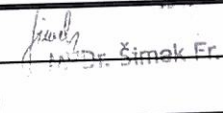 MUDr. Šimak Fr.